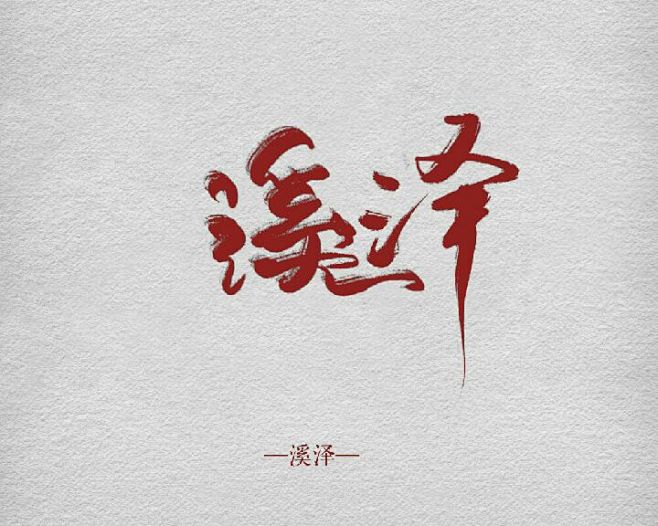 溪泽
—溪泽—